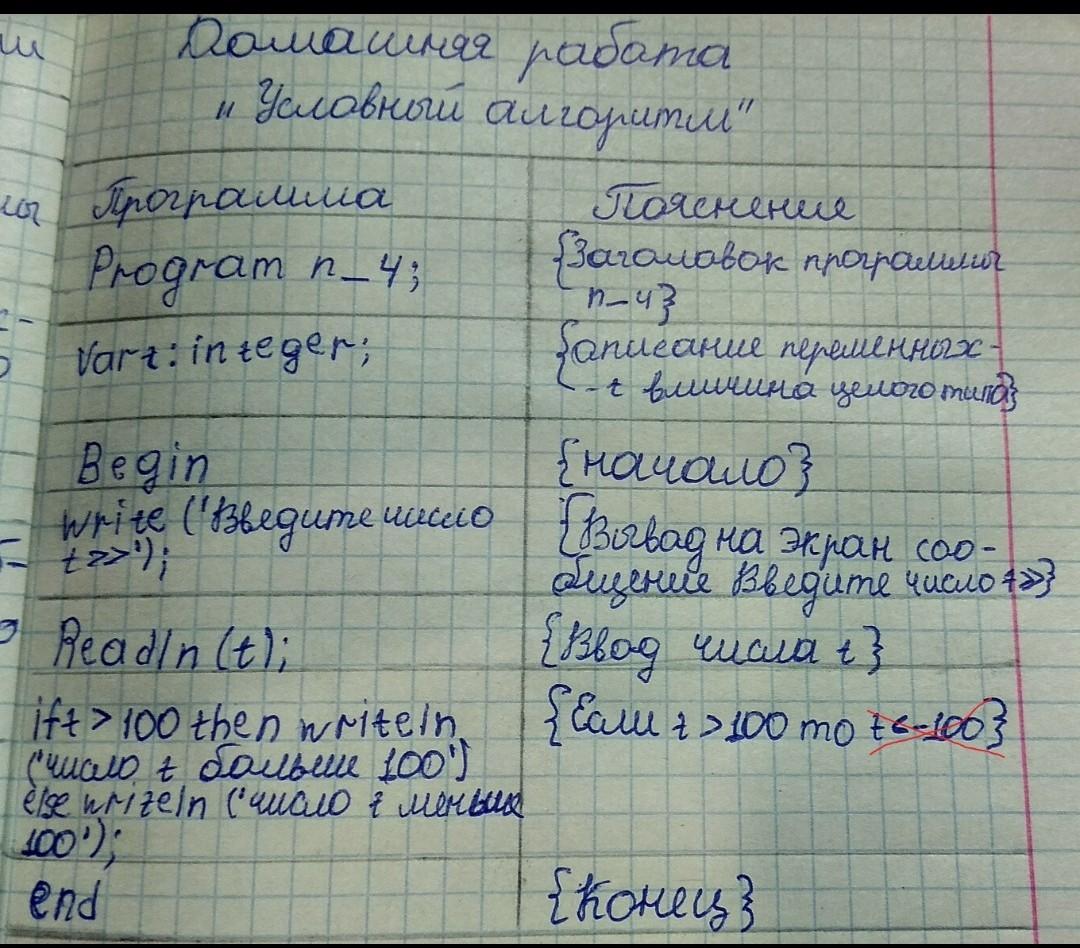 Домашняя работа
„Условный алгоритм"
Программа
Пояснение
Program n_4;
{Заголовок программы
n_4}
Var t: integer;
{описание переменных-
-t вличина целого типа}
Begin
{начало}
write ('Введите число
t>>');
{Вывад на экран соо-
общение Введите число t>>}
Readln (t);
{Ввод числа t}
if t > 100 then writeln
('число t больше 100')
else writeln ('число t меньше
100');
{Если t > 100 то t<-100}
end
{Конец}